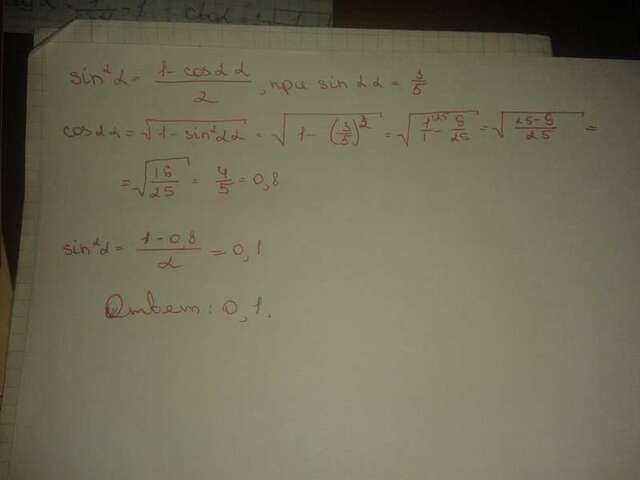 sin²α = (1 - cos2α)/2, при sin 2α = 3/5
cos2α = √(1 - sin²2α) = √(1 - (3/5)²) = √(1/1 - 9/25) = √((25-9)/25) =
= √(16/25) = 4/5 = 0,8
sin²α = (1 - 0,8)/2 = 0,1
Ответ: 0,1.